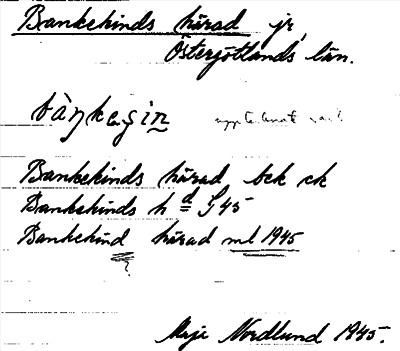 Bankekinds härad jr,
Östergötlands län.
bàŋkeʒin
Bankekinds härad bck ck
Bankekinds hd G45
Bankekind härad ml 1945
Nordlund 1945.